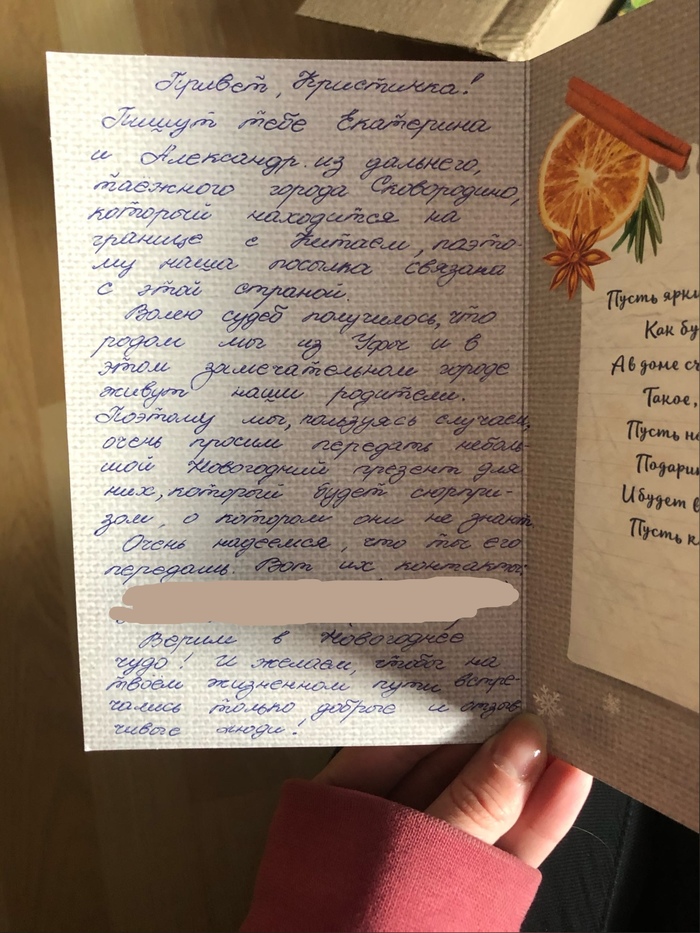 Привет, Кристинка!
Пишут тебе Екатерина
и Александр из дальнего,
таежного города Сковородино,
который находится на
границе с Китаем, поэто-
му наша посылка связана
с этой страной.
Волею судеб получилось, что
родом мы из Уфы и в
этом замечательном городе
живут наши родители.
Поэтому мы, пользуясь случаем,
очень просим передать неболь-
шой Новогодний презент для
них, который будет сюрпри-
зом, о котором они не знают.
Очень надеемся, что ты его
передашь. Вот их контакты:
Верим в Новогоднее
чудо! И желаем, чтобы на
твоём жизненном пути встре-
чались только добрые и отзыв-
чивые люди!
Пусть ярки
Как бу
А в доме сч
Такое,
Пусть на
Подари
И будет в
Пусть к